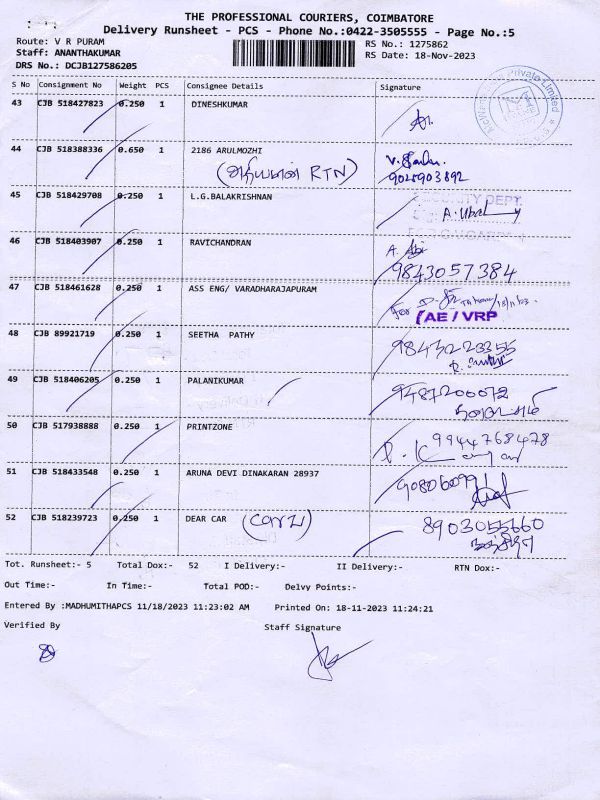 THE PROFESSIONAL COURIERS, COIMBATORE
Delivery Runsheet - PCS - Phone No.:0422-3505555 - Page No.:5
Route: V R PURAM
RS No.: 1275862
Staff: ANANTHAKUMAR
RS Date: 18-Nov-2023
DRS No.: DCJB127586205
S No Consignment No Weight PCS Consignee Details Signature
43 CJB 518427823 0.250 1 DINESHKUMAR
44 CJB 518388336 0.650 1 2186 ARULMOZHI
(அதியமான் RTN)
9025903892
45 CJB 518429708 0.250 1 L.G.BALAKRISHNAN
SECURITY DEPT.
46 CJB 518403907 0.250 1 RAVICHANDRAN
9843057384
47 CJB 518461628 0.250 1 ASS ENG/ VARADHARAJAPURAM
For
(AE / VRP
48 CJB 89921719 0.250 1 SEETHA PATHY
9843223355
49 CJB 518406205 0.250 1 PALANIKUMAR
9487200072
50 CJB 517938888 0.250 1 PRINTZONE
9944768478
51 CJB 518433548 0.250 1 ARUNA DEVI DINAKARAN 28937
52 CJB 518239723 0.250 1 DEAR CAR
8903055660
Tot. Runsheet:- 5 Total Dox:- 52 I Delivery:- II Delivery:- RTN Dox:-
Out Time:- In Time:- Total POD:- Delvy Points:-
Entered By :MADHUMITHAPCS 11/18/2023 11:23:02 AM Printed On: 18-11-2023 11:24:21
Verified By Staff Signature